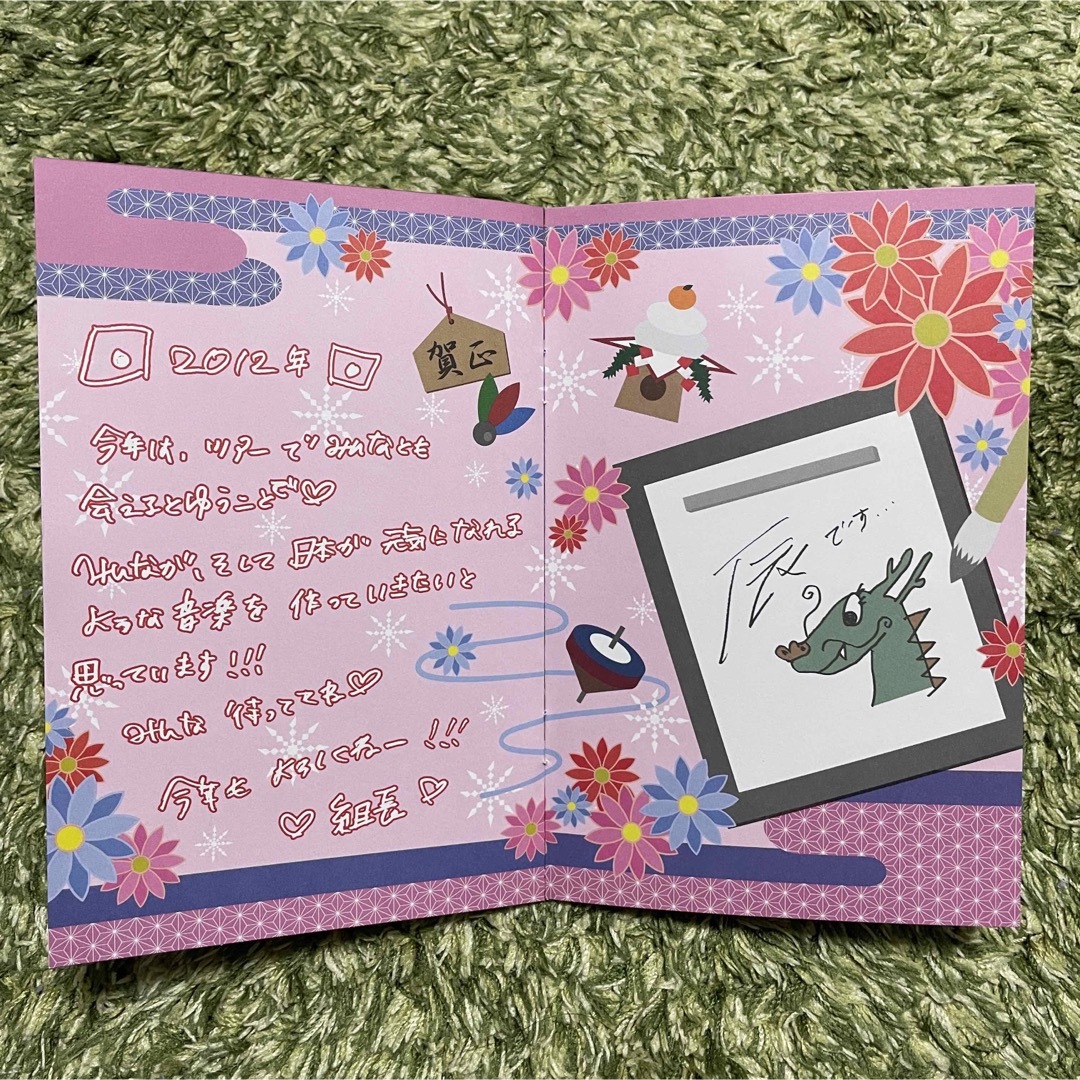 2012年
今年は、ツアーでみんなとも
会えるとゆうことで♡
みんなが、そして日本が元気になれる
ような音楽を作っていきたいと
思っています!!!
みんな待っててね♡
今年もよろしくねー!!!
♡組長♡
賀正
辰です...